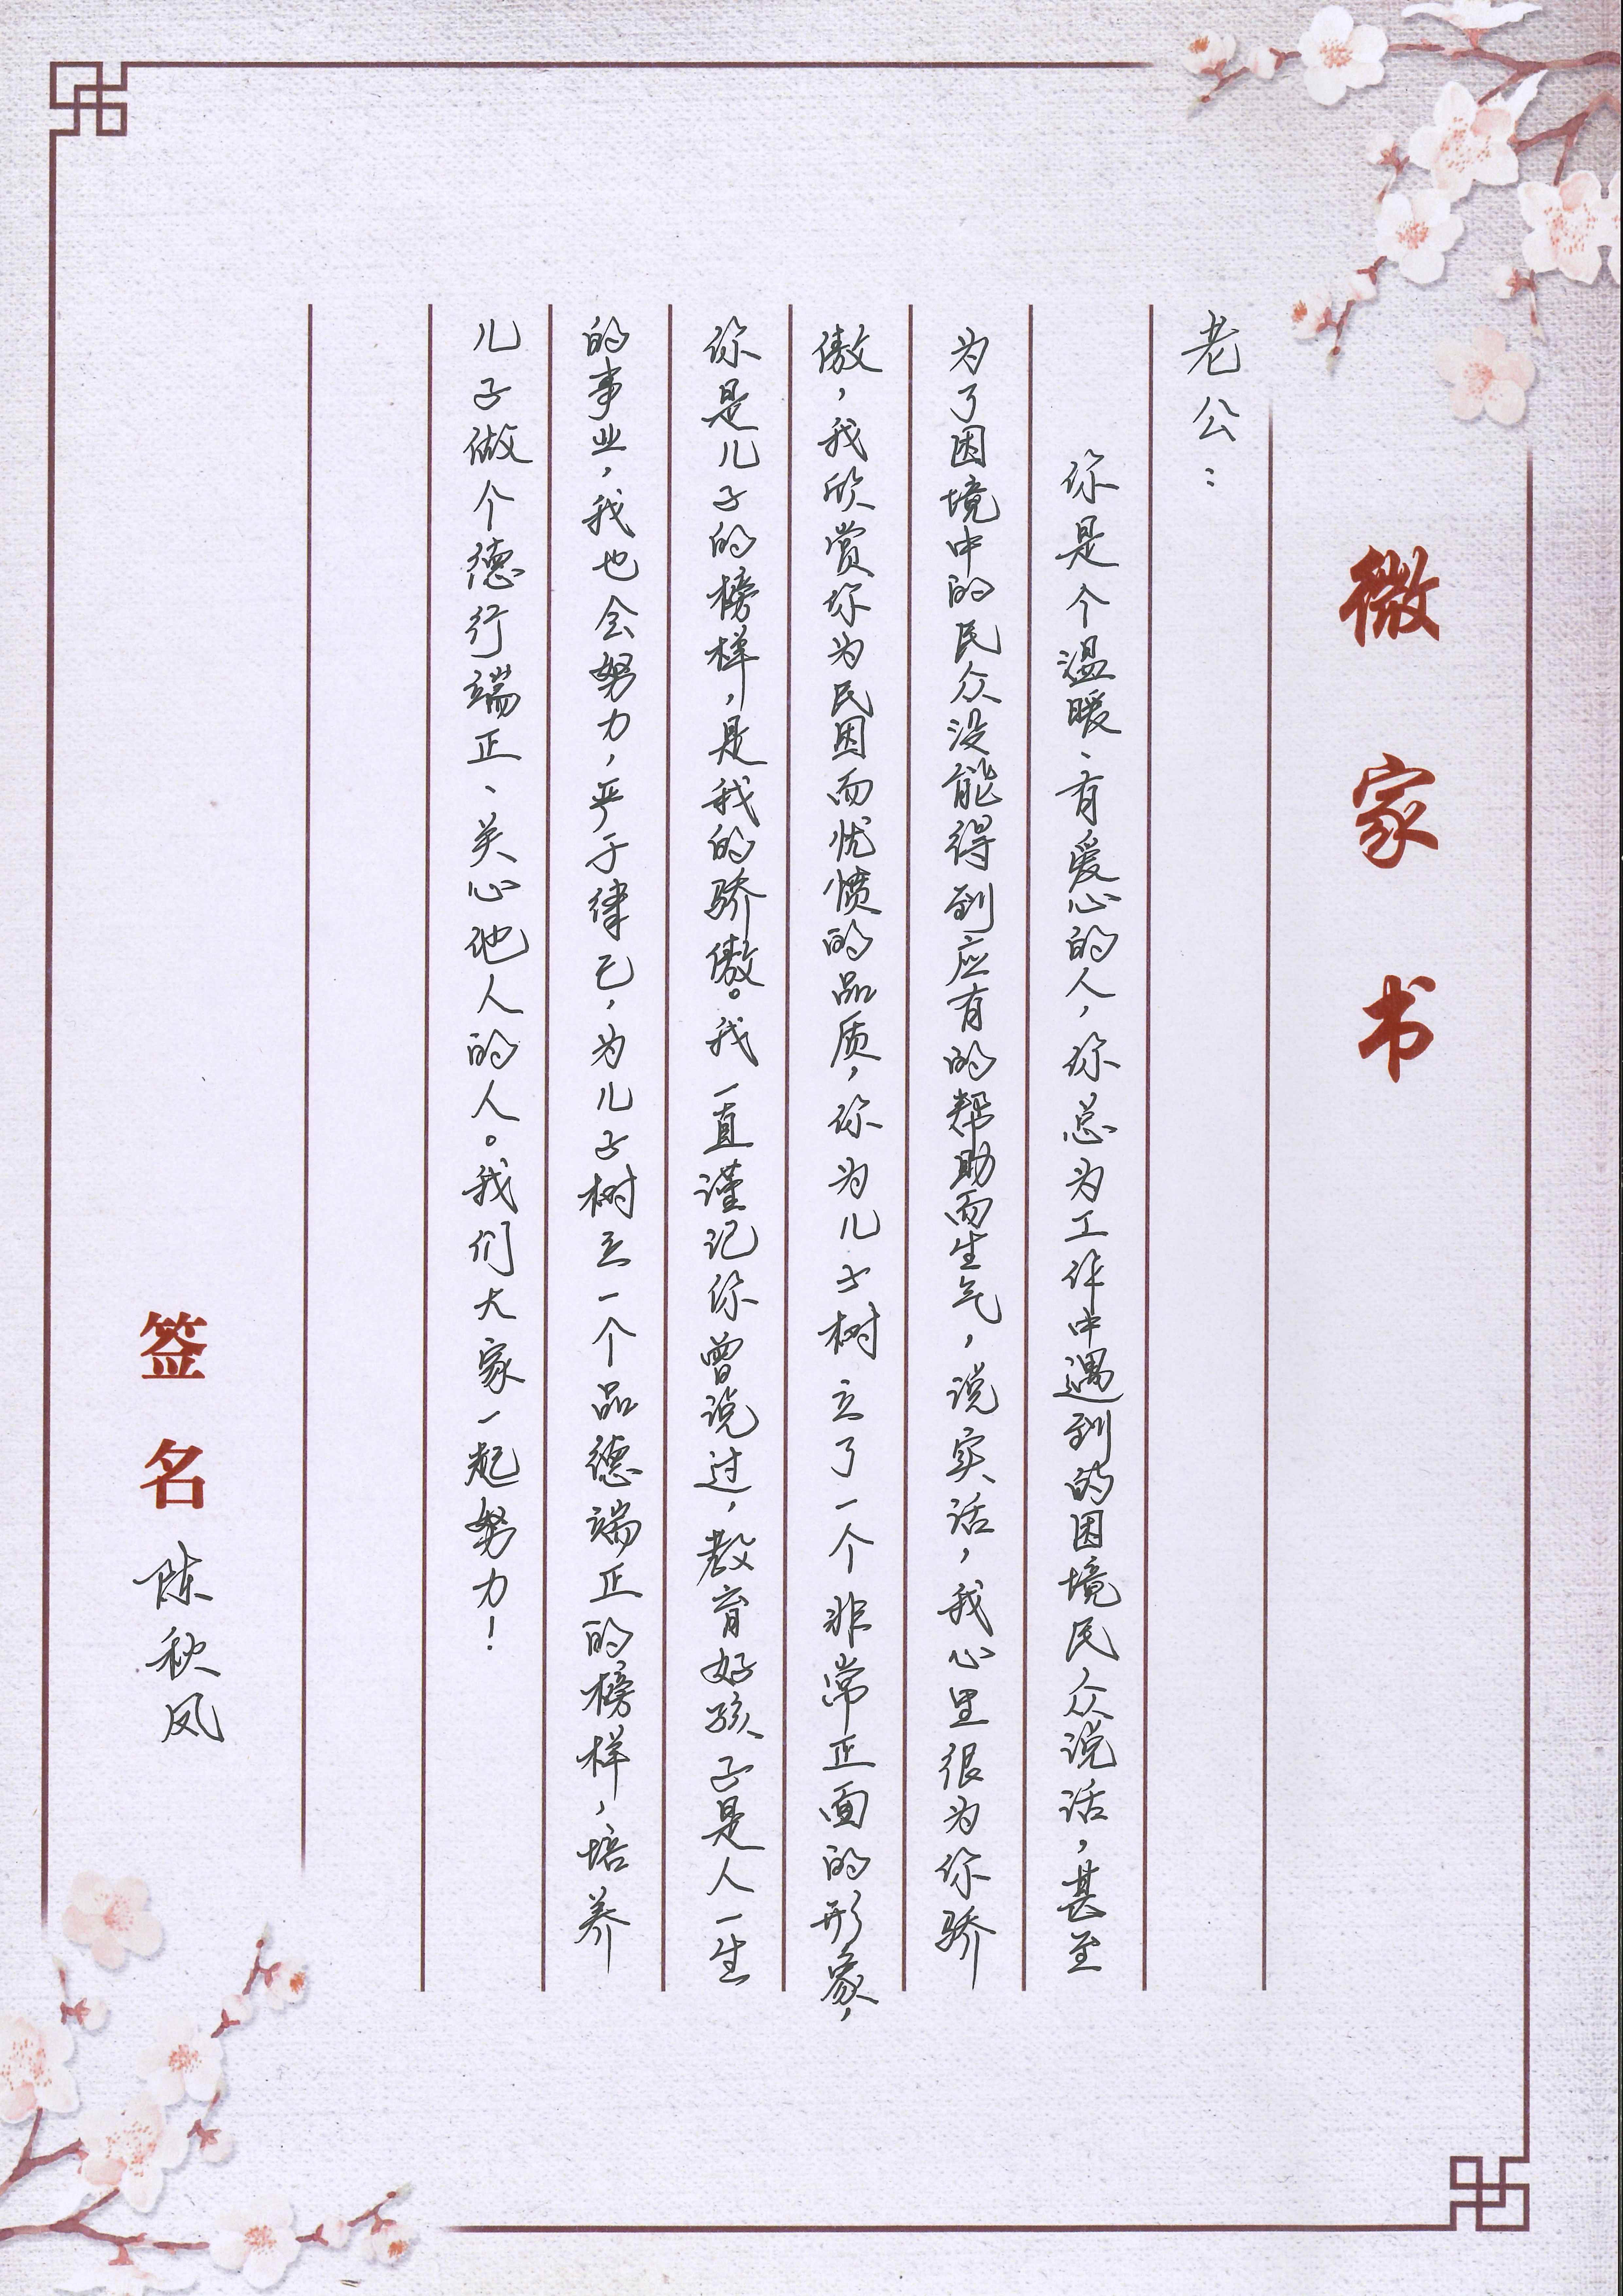 微家书
老公：
你是个温暖、有爱心的人，你总为工作中遇到的困境民众说话，甚至
为了困境中的民众没能得到应有的帮助而生气，说实话，我心里很为你骄
傲，我欣赏你为民困而忧愤的品质，你为儿子树立了一个非常正面的形象，
你是儿子的榜样，是我的骄傲。我一直谨记你曾说过，教育好孩子是人一生
的事业，我也会努力，严于律己，为儿子树立一个品德端正的榜样，培养
儿子做个德行端正、关心他人的人。我们大家一起努力！
签名 陈秋凤